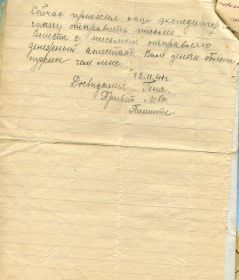 Сейчас приехал наш экспедитор,
спешу отправить письмо.
Вместе с письмом отправляю
денежный аттестат Вам деньги более
нужнее чем мне.
Досвидания. Гона.
Привет Лево
Пишите.